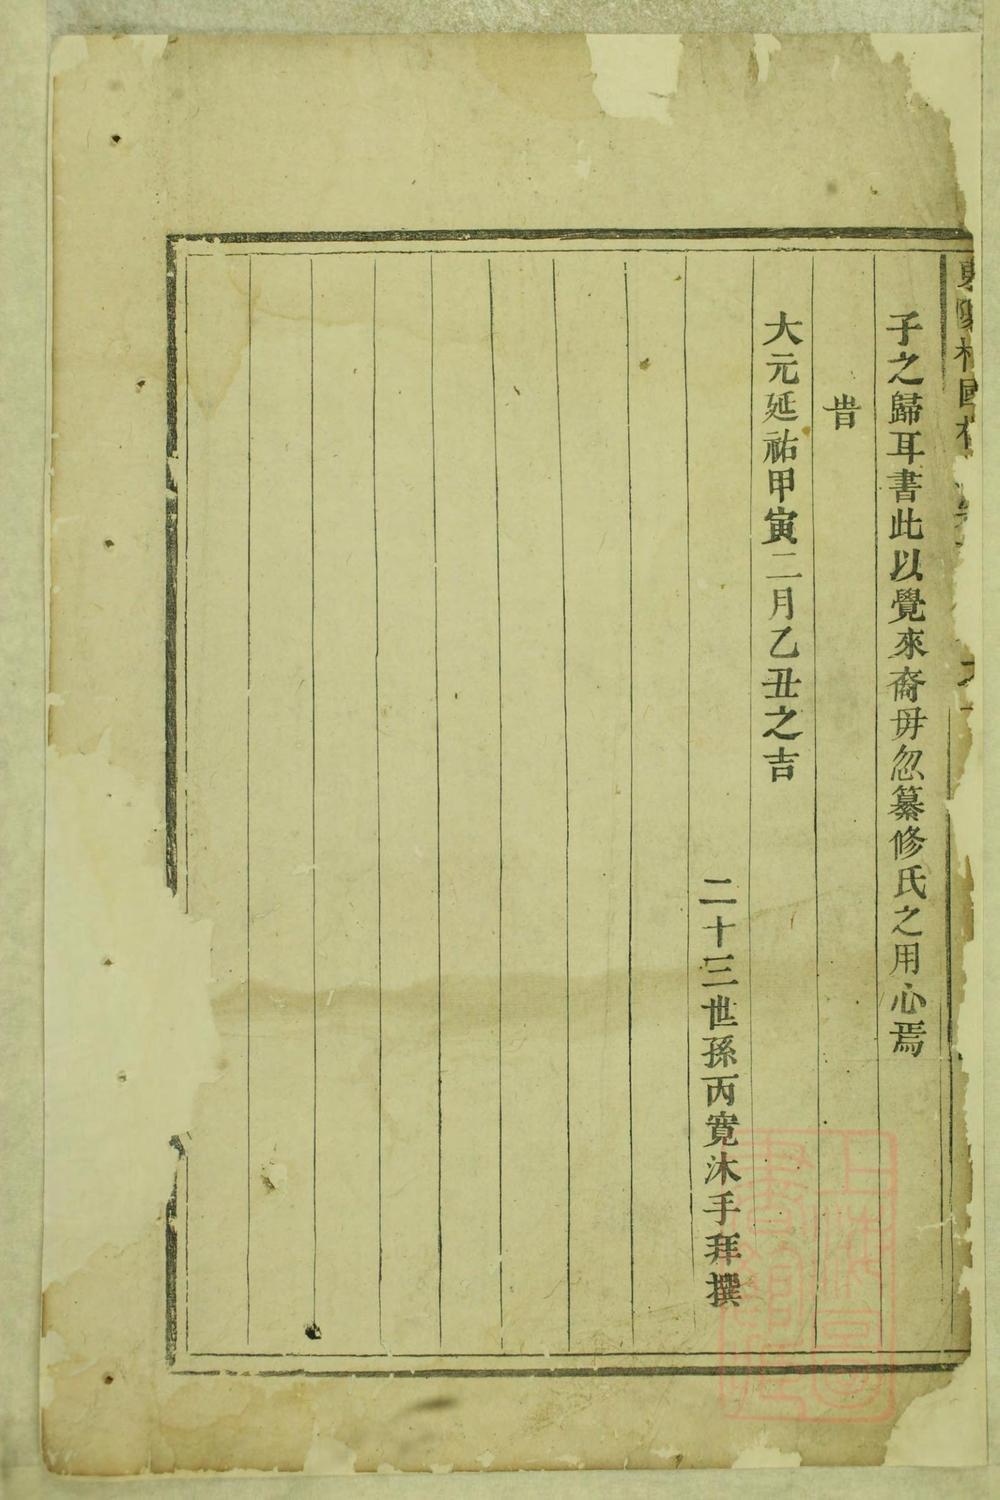 子之歸耳書此以覺來裔毋忽纂修氏之用心焉
旹
大元延祐甲寅二月乙丑之吉
二十三世孫丙寬沐手拜撰
上海圖書館藏